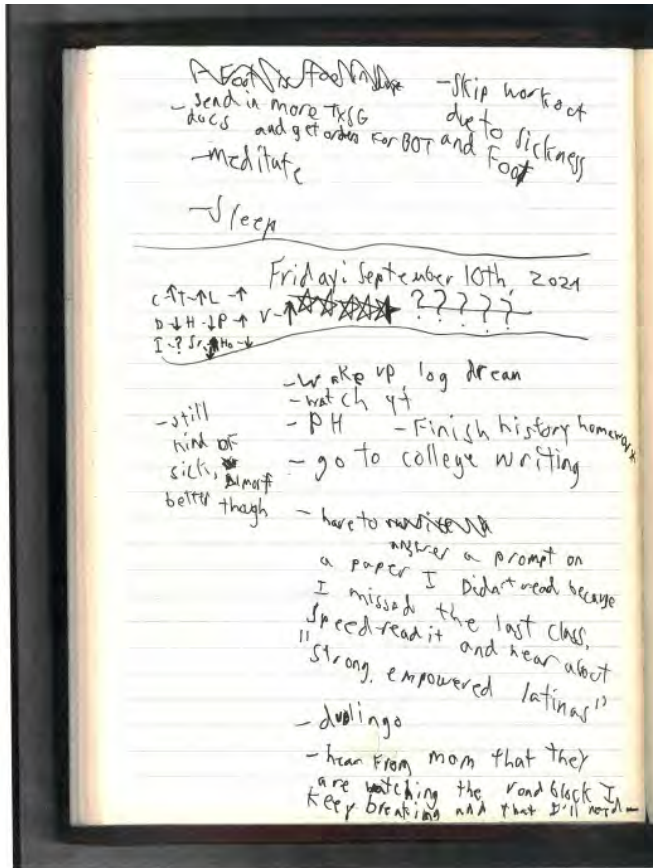 - Send in more TXSG
docs and get orders for BOT and Foot
- meditate
- Sleep
- Skip workout
due to sickness
Friday: September 10th, 2021
C-↑ T-↑ L-↑
D-↓ H-↓ P-↑ V-↑ ? ? ? ? ?
I-?
- Wake up, log dream
- watch yt
- PH - Finish history homework
- go to college writing
- still
kind of
sick,
almost
better though
- have to
answer a prompt on
a paper I Didn't read because
I missed the last class,
Speed-read it and hear about
"Strong, empowered latinas"
- duolingo
- hear from mom that they
are watching the road block I
keep breaking and that I'll need-